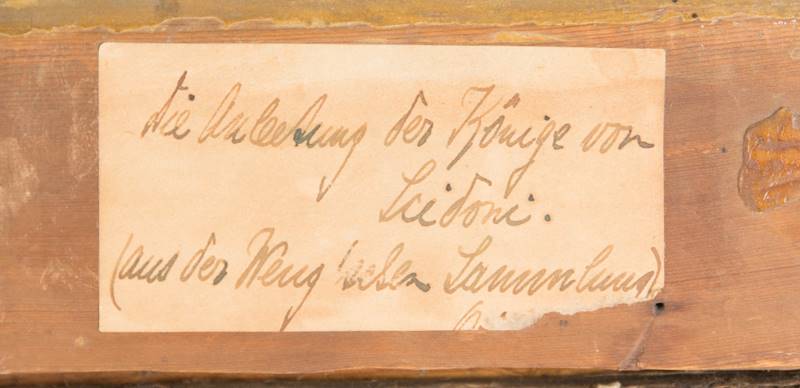 Die Anbetung der Könige von
Scidoni.
(aus der Weng'schen Sammlung)